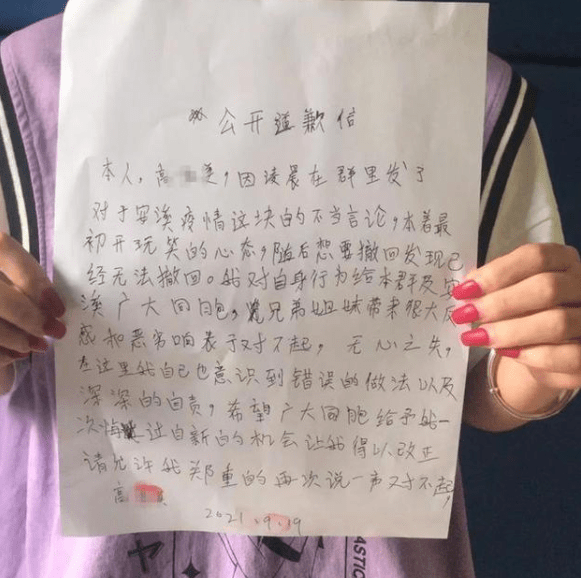 公开道歉信
本人，高 ，因凌晨在群里发了
对于安溪疫情这块的不当言论，本着最
初开玩笑的心态，随后想要撤回发现已
经无法撤回。我对自身行为给本群及安
溪广大同胞，兄弟姐妹带来很大反
感和恶劣响表示对不起，无心之失，
在这里我自己也意识到错误的做法以及
深深的自责，希望广大同胞给予我一
次悔过自新的机会让我得以改正
请允许我郑重的再次说一声对不起，
高
2021.9.19
ASTIC